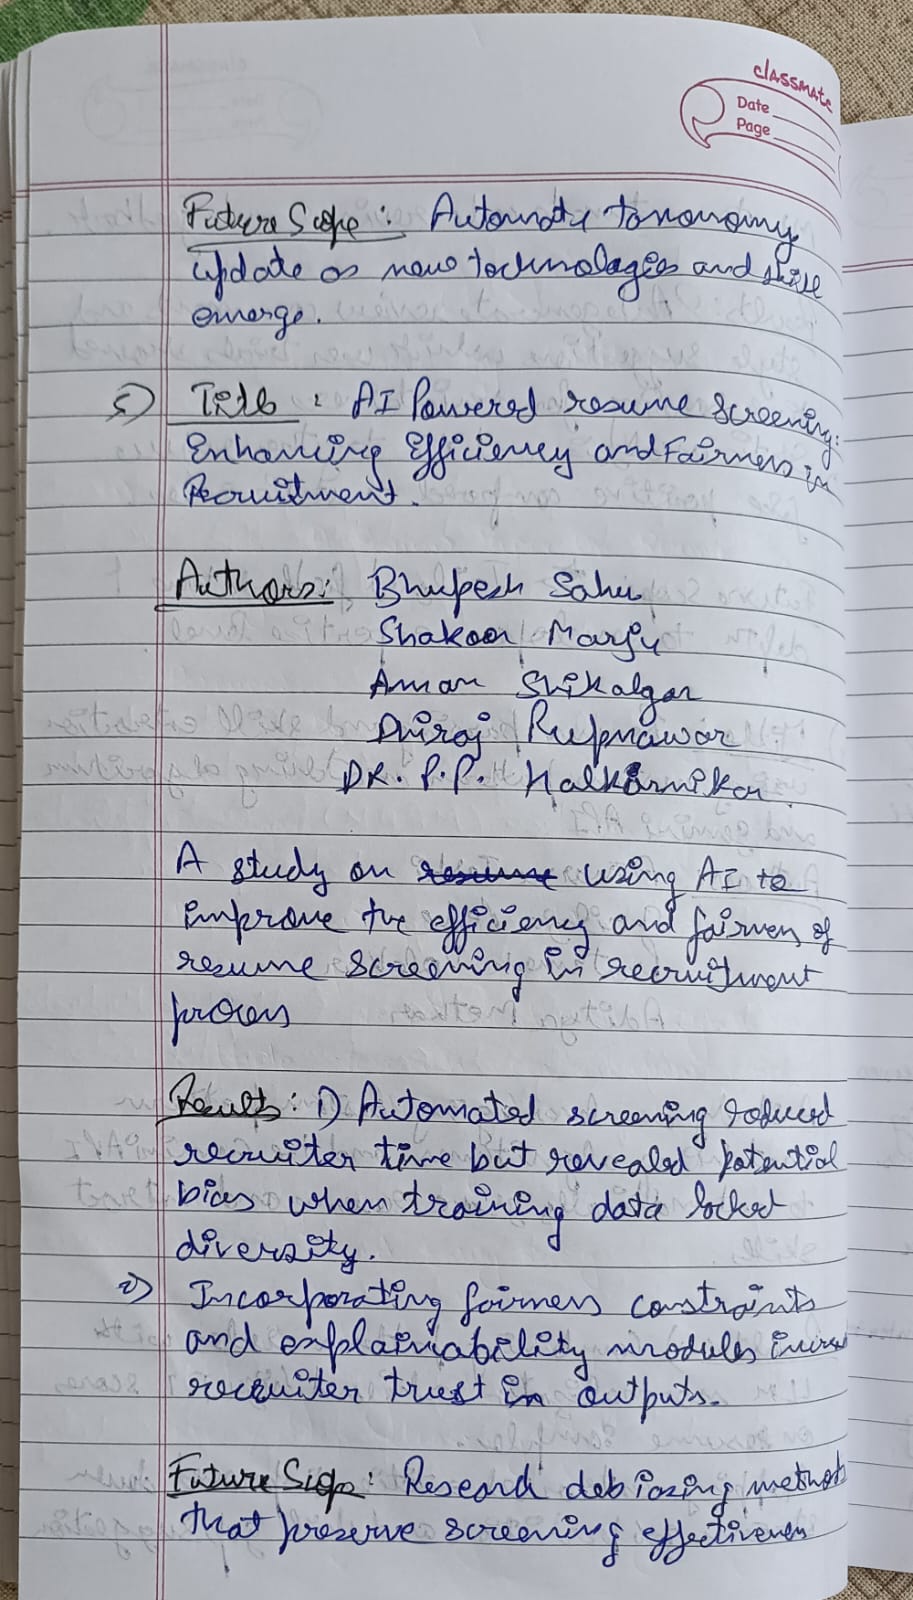 classmate
Date
Page
Future Scope: Automate taxonomy
update as new technologies and skill
emerge.
5) Title : AI Powered resume Screening:
Enhancing Efficiency and Fairness in
Recruitment.
Authors: Bhupesh Sahu
Shakoor Marju
Aman Shikalgar
Dhiraj Rupnawar
DR. P.P. Halkarnikar
A study on resume using AI to
improve the efficiency and fairness of
resume screening in recruitment
process
Results: 1) Automated screening reduced
recruiter time but revealed potential
bias when training data lacked
diversity.
2) Incorporating fairness constraints
and explainability modules
recruiter trust in outputs.
Future Scope: Research debiasing methods
that preserve screening effectiveness